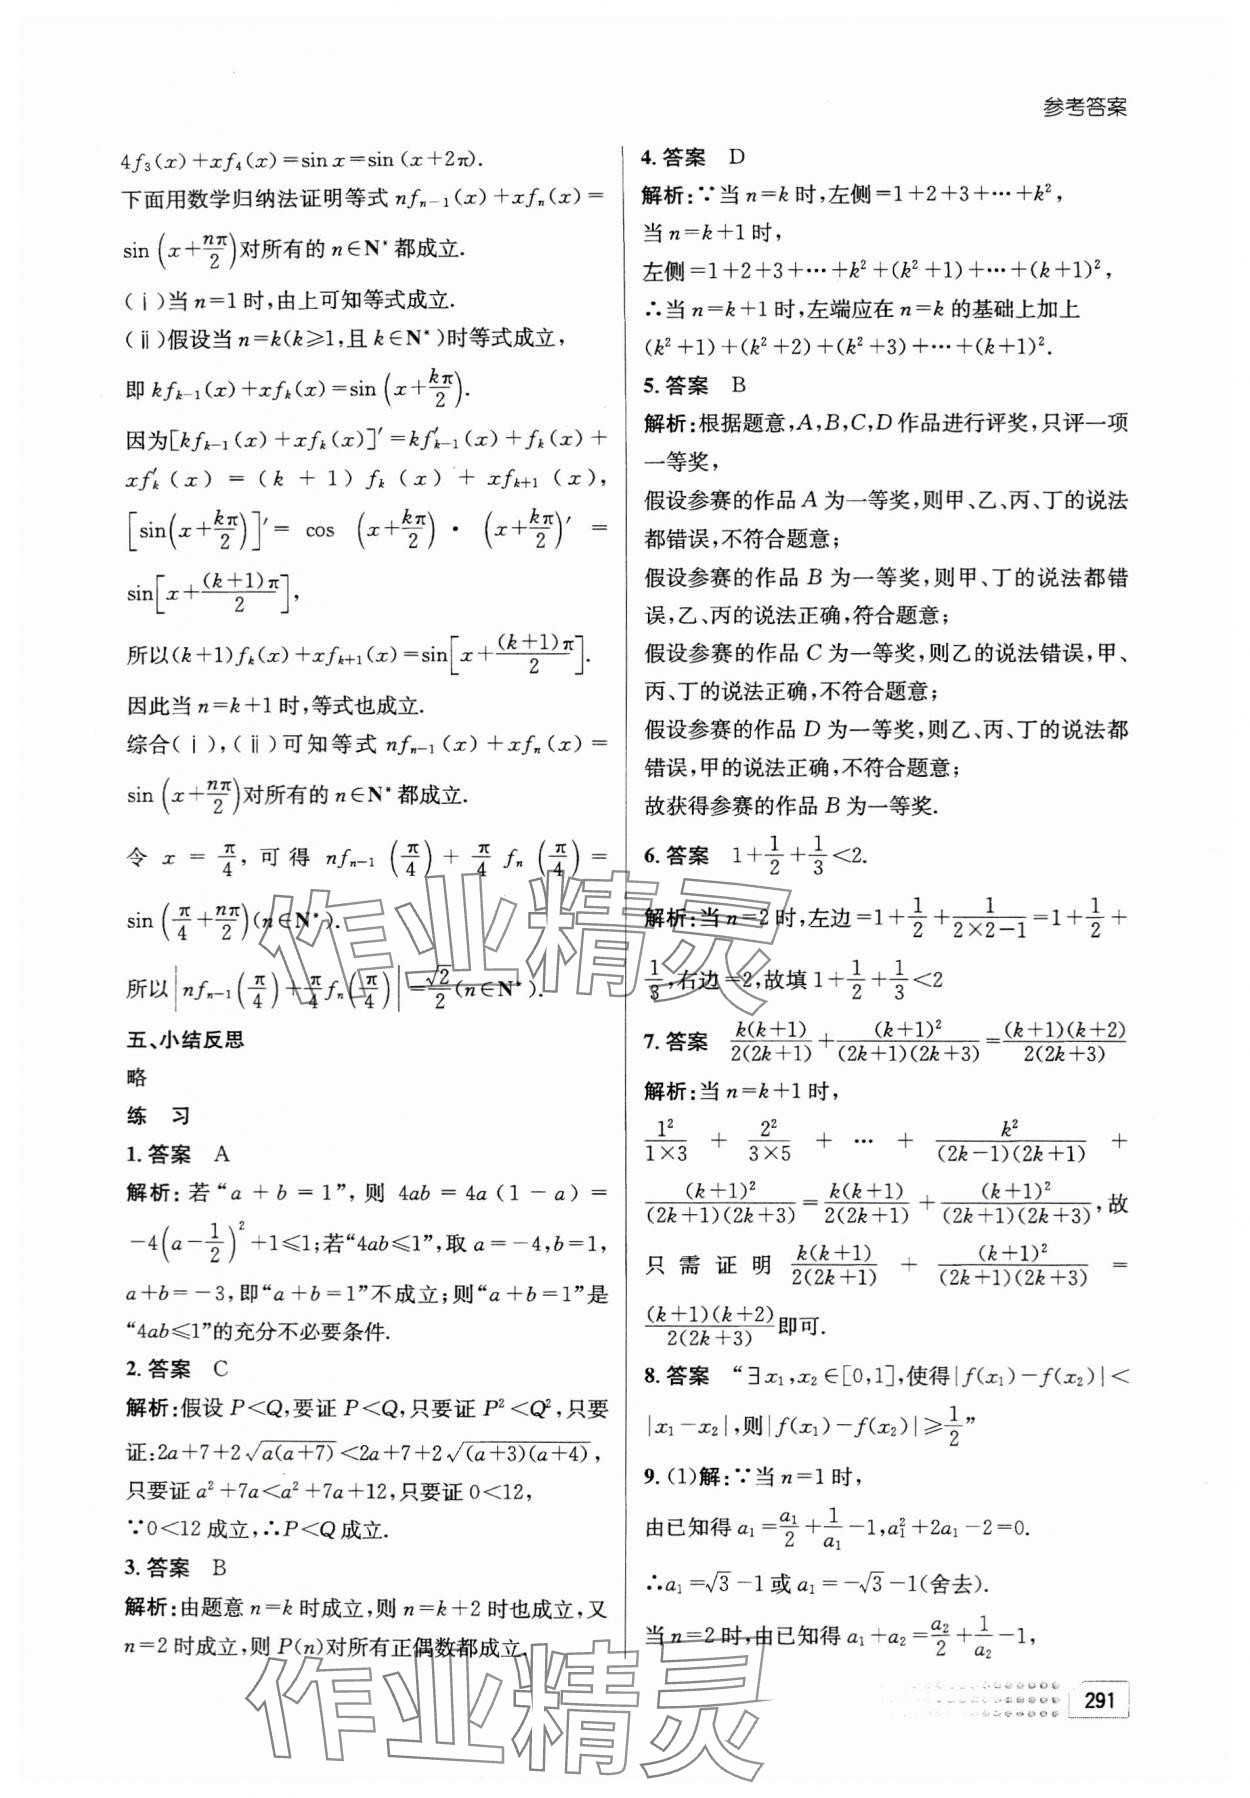 参考答案
4f₃(x)+xf₄(x)=sin x=sin (x+2π).
下面用数学归纳法证明等式 nfₙ₋₁(x)+xfₙ(x)=
sin (x+nπ/2)对所有的 n∈N* 都成立.
(ⅰ)当 n=1 时,由上可知等式成立.
(ⅱ)假设当 n=k(k⩾1,且 k∈N*)时等式成立,
即 kfₖ₋₁(x)+xfₖ(x)=sin (x+kπ/2).
因为[kfₖ₋₁(x)+xfₖ(x)]′=kf′ₖ₋₁(x)+fₖ(x)+
xf′ₖ(x)=(k+1)fₖ(x)+xfₖ₊₁(x),
[sin(x+kπ/2)]′=cos (x+kπ/2)·(x+kπ/2)′=
sin[x+(k+1)π/2],
所以(k+1)fₖ(x)+xfₖ₊₁(x)=sin[x+(k+1)π/2].
因此当 n=k+1 时,等式也成立.
综合(ⅰ),(ⅱ)可知等式 nfₙ₋₁(x)+xfₙ(x)=
sin (x+nπ/2)对所有的 n∈N* 都成立.
令 x=π/4,可得 nfₙ₋₁(π/4)+π/4 fₙ(π/4)=
sin (π/4+nπ/2)(n∈N*).
所以|nfₙ₋₁(π/4)+π/4 fₙ(π/4)|=√2/2(n∈N*).
五、小结反思
略
练 习
1. 答案 A
解析:若“a+b=1”,则 4ab=4a(1-a)=
-4(a-1/2)²+1⩽1;若“4ab⩽1”,取 a=-4,b=1,
a+b=-3,即“a+b=1”不成立;则“a+b=1”是
“4ab⩽1”的充分不必要条件.
2. 答案 C
解析:假设 P<Q,要证 P<Q,只要证 P²<Q²,只要
证:2a+7+2√(a(a+7))<2a+7+2√((a+3)(a+4)),
只要证 a²+7a<a²+7a+12,只要证 0<12,
∵0<12 成立,∴P<Q 成立.
3. 答案 B
解析:由题意 n=k 时成立,则 n=k+2 时也成立,又
n=2 时成立,则 P(n)对所有正偶数都成立.
4. 答案 D
解析:∵当 n=k 时,左侧=1+2+3+…+k²,
当 n=k+1 时,
左侧=1+2+3+…+k²+(k²+1)+…+(k+1)²,
∴当 n=k+1 时,左端应在 n=k 的基础上加上
(k²+1)+(k²+2)+(k²+3)+…+(k+1)².
5. 答案 B
解析:根据题意,A,B,C,D 作品进行评奖,只评一项
一等奖,
假设参赛的作品 A 为一等奖,则甲、乙、丙、丁的说法
都错误,不符合题意;
假设参赛的作品 B 为一等奖,则甲、丁的说法都错
误,乙、丙的说法正确,符合题意;
假设参赛的作品 C 为一等奖,则乙的说法错误,甲、
丙、丁的说法正确,不符合题意;
假设参赛的作品 D 为一等奖,则乙、丙、丁的说法都
错误,甲的说法正确,不符合题意;
故获得参赛的作品 B 为一等奖.
6. 答案 1+1/2+1/3<2.
解析:当 n=2 时,左边=1+1/2+1/(2×2-1)=1+1/2+
1/3,右边=2,故填 1+1/2+1/3<2
7. 答案 k(k+1)/2(2k+1)+(k+1)²/(2k+1)(2k+3)=(k+1)(k+2)/2(2k+3)
解析:当 n=k+1 时,
1²/1×3+2²/3×5+…+k²/(2k-1)(2k+1)+
(k+1)²/(2k+1)(2k+3)=k(k+1)/2(2k+1)+(k+1)²/(2k+1)(2k+3),故
只需证明 k(k+1)/2(2k+1)+(k+1)²/(2k+1)(2k+3)=
(k+1)(k+2)/2(2k+3)即可.
8. 答案 “∃x₁,x₂∈[0,1],使得|f(x₁)-f(x₂)|<
|x₁-x₂|,则|f(x₁)-f(x₂)|⩾1/2”
9. (1)解:∵当 n=1 时,
由已知得 a₁=a₁/2+1/a₁-1,a₁²+2a₁-2=0.
∴a₁=√3-1 或 a₁=-√3-1(舍去).
当 n=2 时,由已知得 a₁+a₂=a₂/2+1/a₂-1,
291
作业精灵
作业精灵